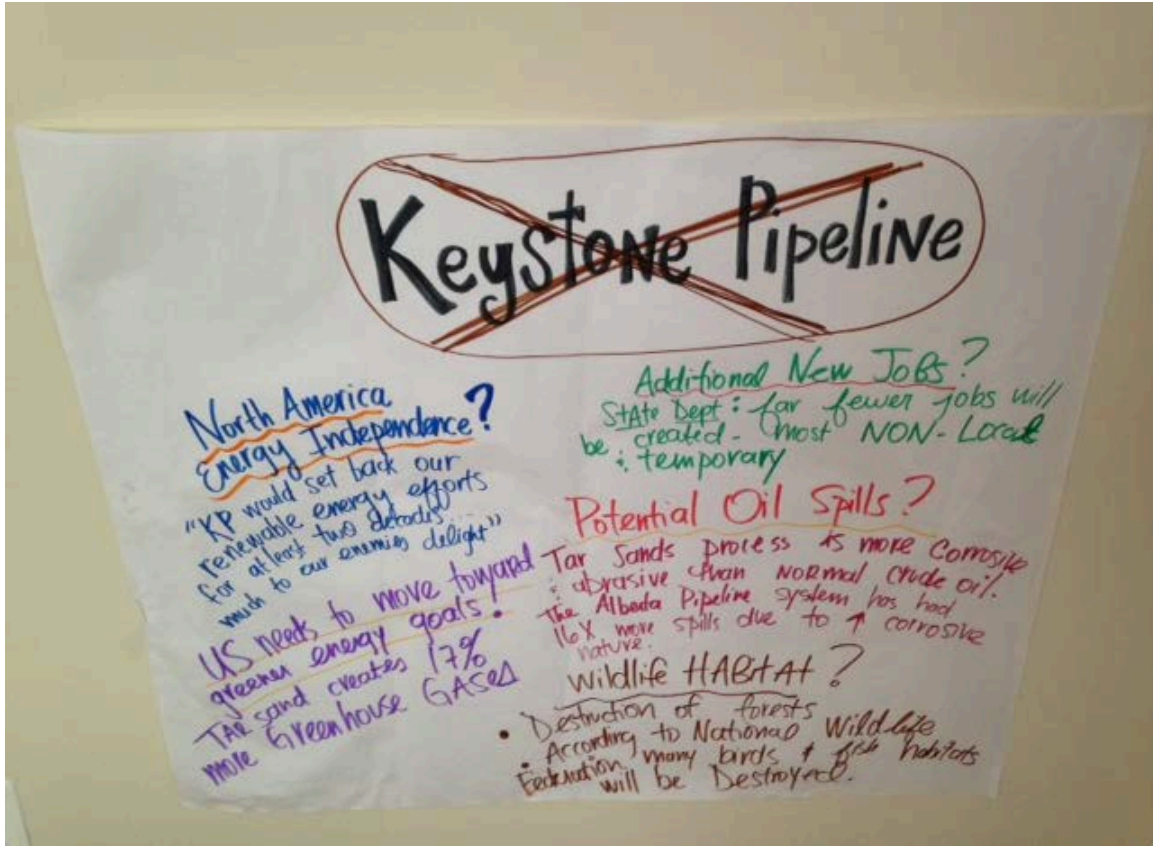 Keystone Pipeline
North America
Energy Independence?
"KP would set back our
renewable energy efforts
for at least two decades...
much to our enemies delight"
US needs to move toward
greener energy goals.
TAR sand creates 17%
more Greenhouse GASes
Additional New Jobs?
State Dept: far fewer jobs will
be created - most NON-Local
& temporary
Potential Oil Spills?
Tar Sands process is more corrosive
& abrasive than normal crude oil.
The Alberta Pipeline system has had
16X more spills due to ↑ corrosive
nature.
Wildlife HABitAt?
• Destruction of forests
• According to National Wildlife
Federation, many birds & fish habitats
will be Destroyed.